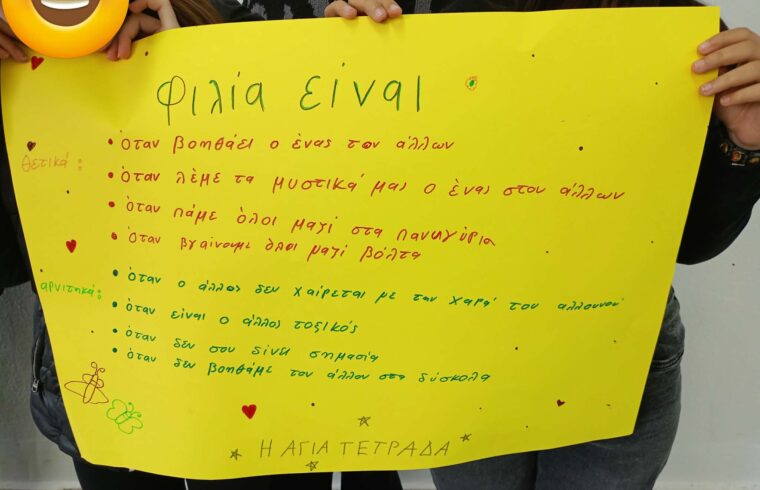 φιλία είναι
θετικά:
• όταν βοηθάει ο ένας τον άλλων
• όταν λέμε τα μυστικά μας ο ένας στον άλλων
• όταν πάμε όλοι μαζί στα πανηγύρια
• όταν βγαίνουμε όλοι μαζί βόλτα
αρνιτηκά:
• όταν ο άλλος δεν χαίρεται με την χαρά του
• όταν είναι ο άλλος τοξικός
• όταν δεν σου δίνει σημασία
• όταν δεν βοηθάμε τον άλλον στα δύσκολα
Η ΑΓΙΑ ΤΕΤΡΑΔΑ